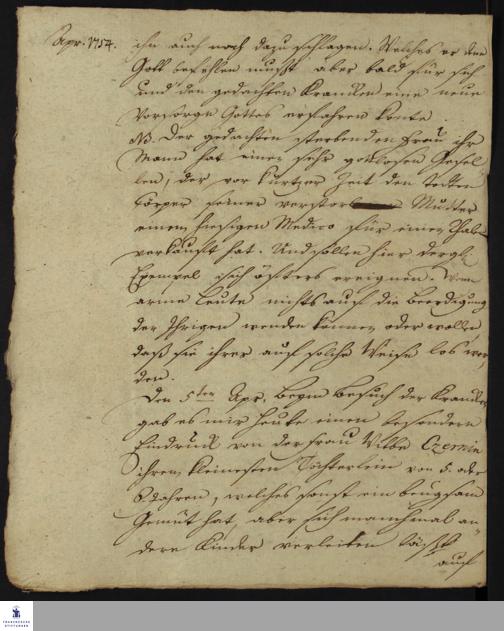 Apr. 1754.
ihn auch noch dazu schlagen. Welches er dem
Gott befehlen mußt aber bald für sich
und den gedachten Krancken eine neue
Vorsorge Gottes erfahren konte.
NB. Der gedachten sterbenden Frau ihr
Mann hat einen sehr gottlosen Gesel-
len, der vor kurtzer Zeit den todten
Cörper seiner verstorbenen Mutter
einem hiesigen Medico für einen Thaler
verkauft hat. Und sollen hier dergl.
Exempel sich öfters ereignen. Wenn
arme Leute nichts auf die Beerdigung
der Ihrigen wenden können oder wollen
daß sie ihrer auf solche Weise los wer-
den.
Den 5ten Apr. Beym Besuch der Krancken
gab es mir heute einen besondern
Eindruck von der Frau Witbe Czernin
ihrem kleinesten Töchterlein von 5. oder
6 Jahren, welches sonst ein beugsam
Gemüt hat, aber sich manchmal an-
dere Kinder verleiten läßt
auf
FRANCKESCHE
STIFTUNGEN